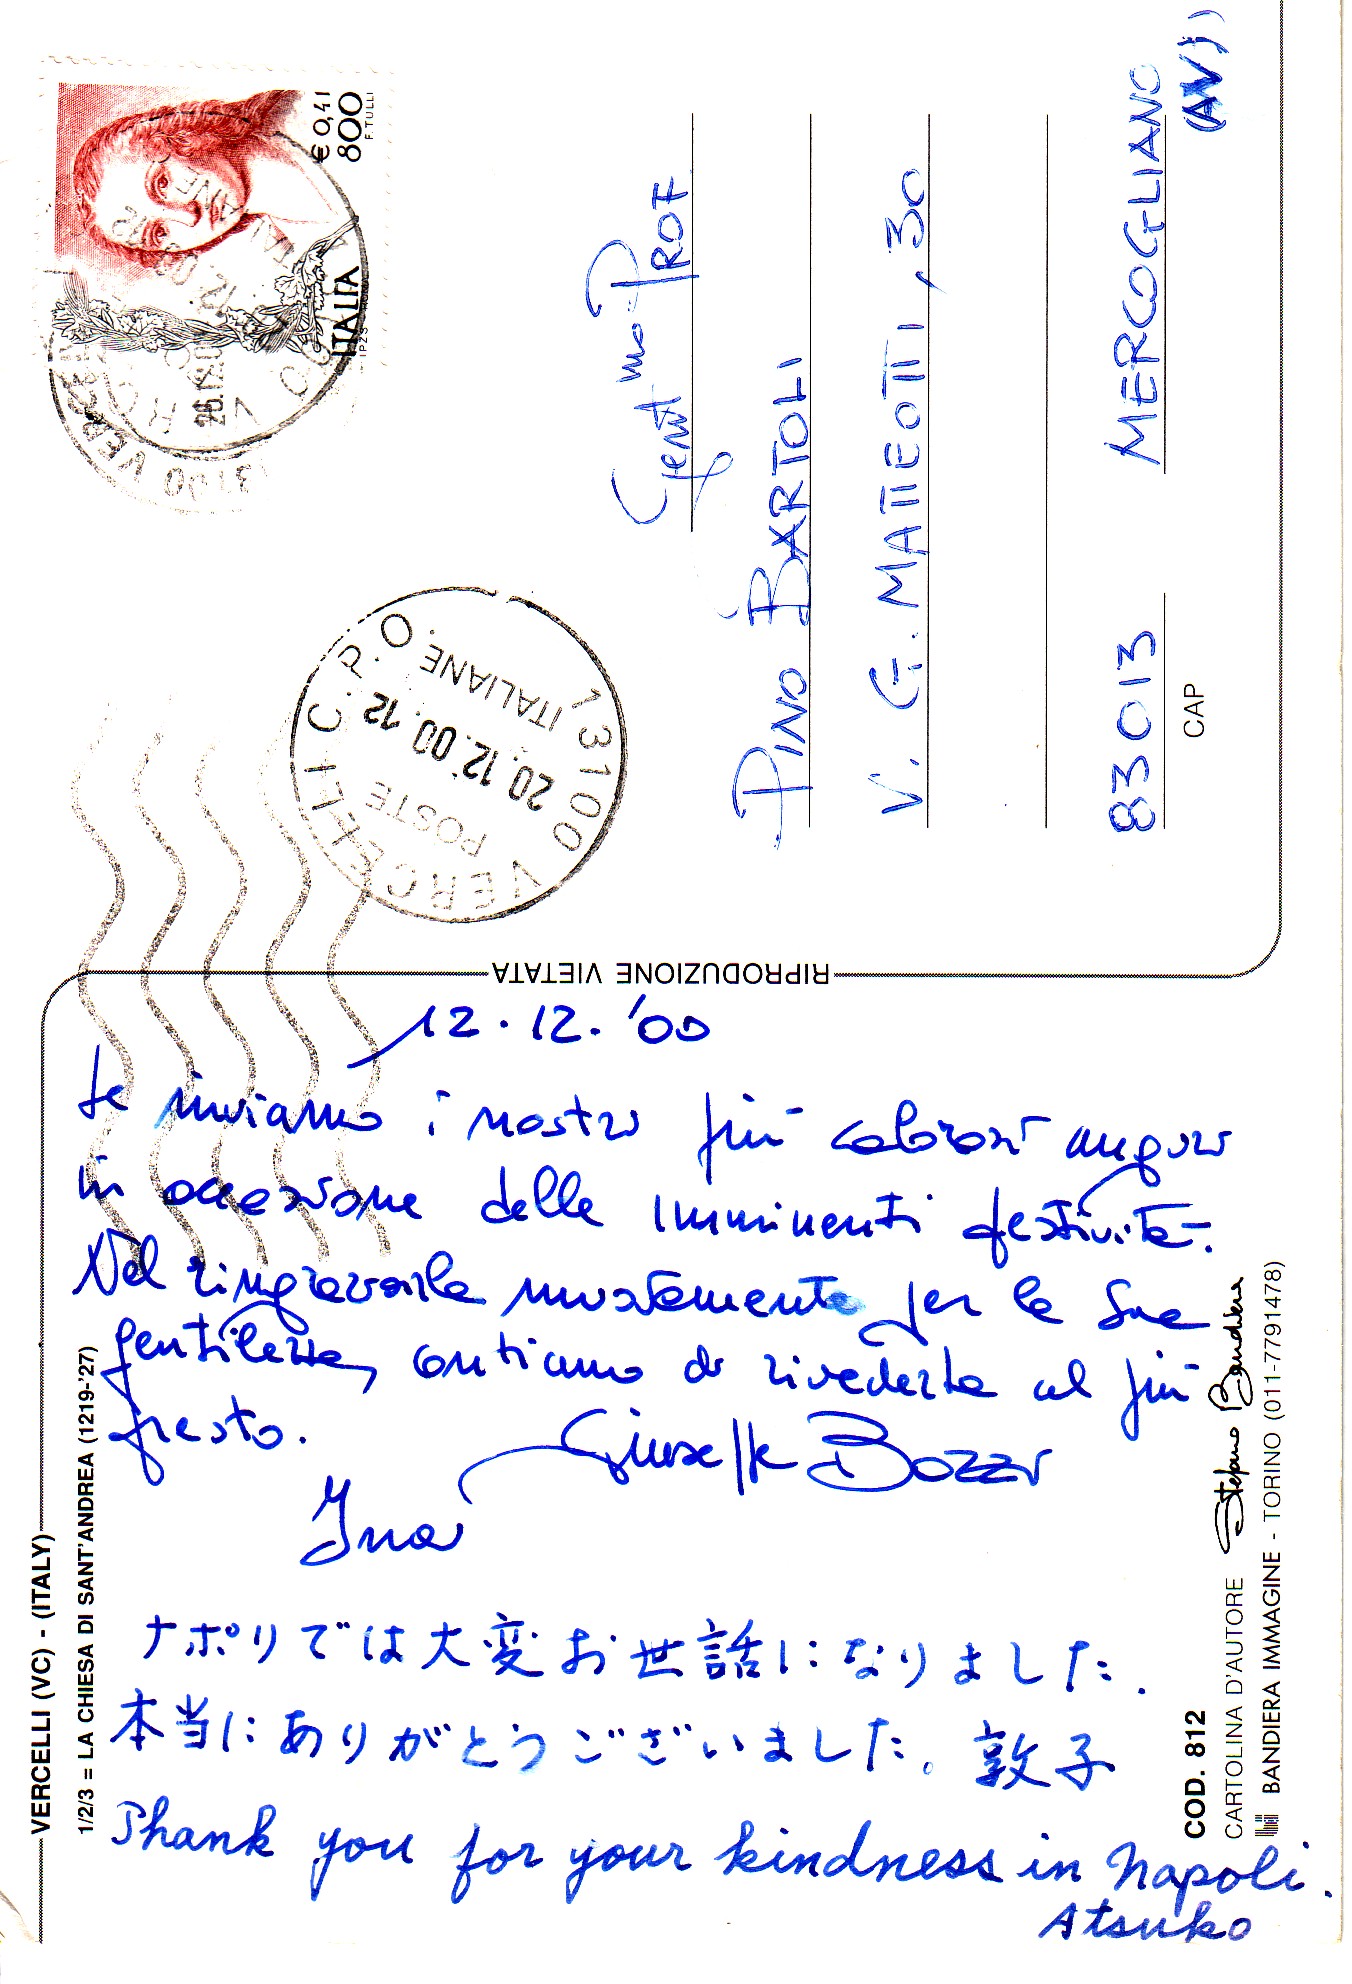 12.12.'00
Le inviamo i nostri più calorosi auguri
in occasione delle imminenti festività.
Nel ringraziarla nuovamente per la Sua
gentilezza, contiamo di rivederla al più
presto.
Giuseppe Bozzi
ナポリでは大変お世話になりました.
本当にありがとうございました。敦子
Thank you for your kindness in Napoli.
Atsuko
VERCELLI (VC) - (ITALY)
1/2/3 = LA CHIESA DI SANT'ANDREA (1219-'27)
COD. 812
CARTOLINA D'AUTORE Stefano Bandiera
BANDIERA IMMAGINE - TORINO (011-7791478)
RIPRODUZIONE VIETATA
€ 0,41
800
F. TULLI
ITALIA
13100 VERCELLI C.P.O.
POSTE ITALIANE
20.12.00.12
Gent.mo PROF
PINO BARTOLI
V. G. MATTEOTTI, 30
83013 MERCOGLIANO
(AV)
CAP